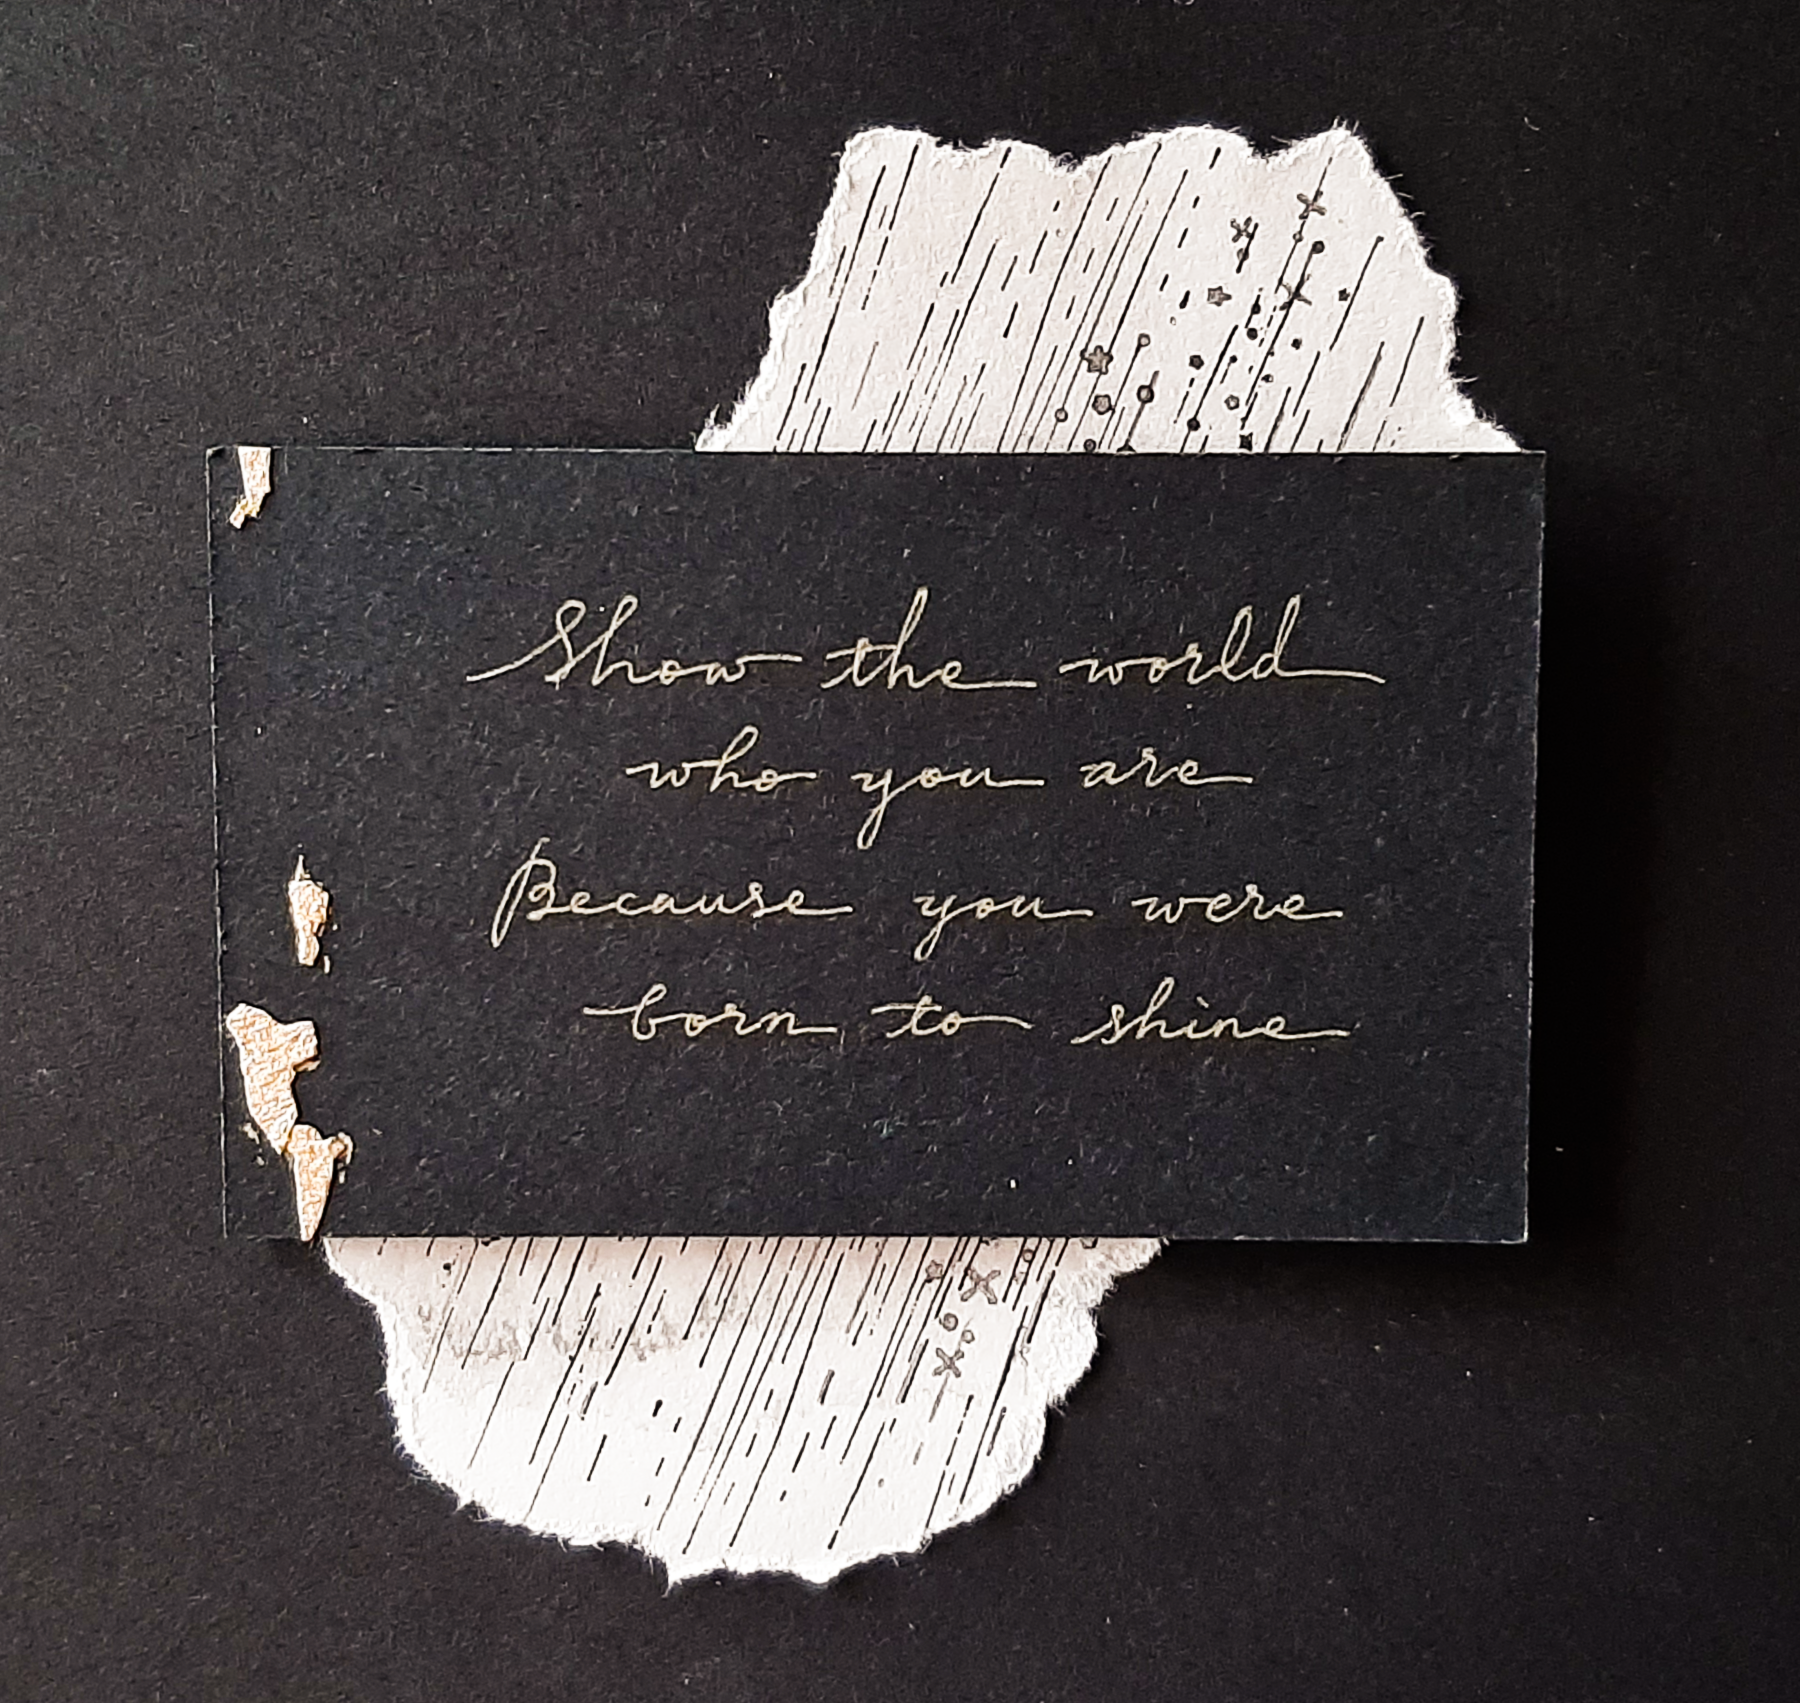 Show the world
who you are
Because you were
born to shine